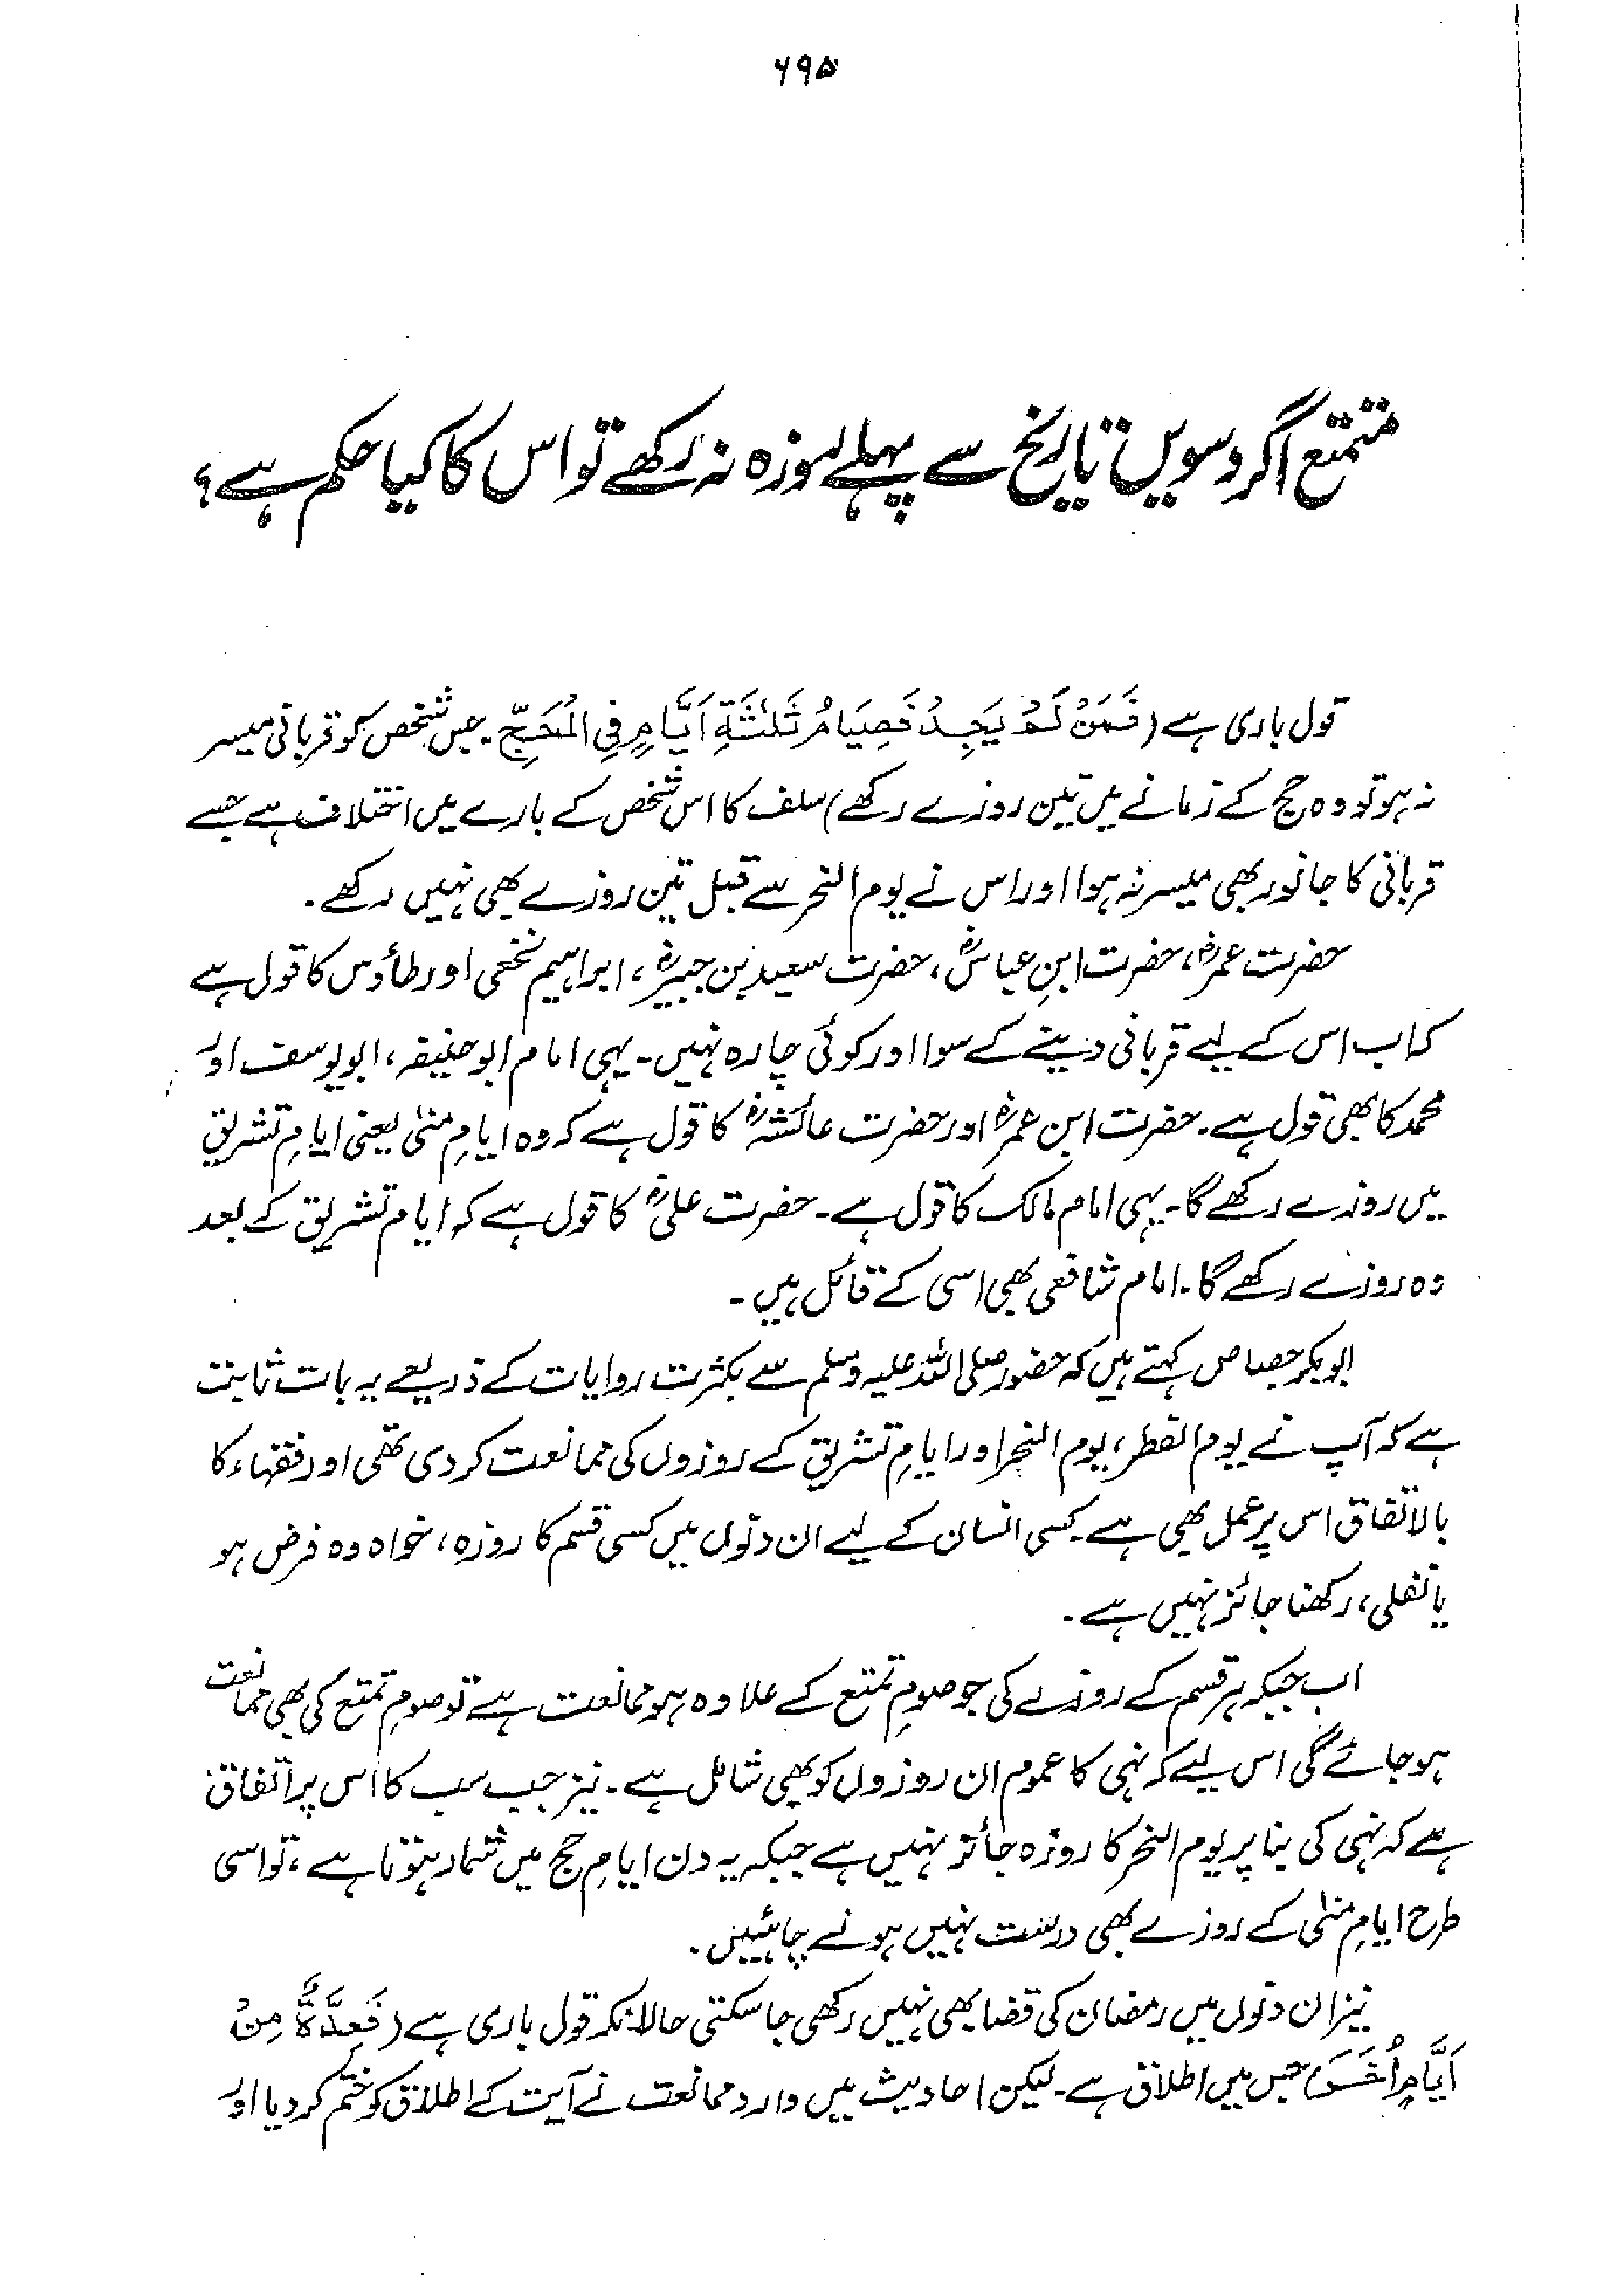 ۶۹۵
متمتع اگر دسویں تاریخ سے پہلے روزہ نہ رکھے تو اس کا کیا حکم ہے؟
قول باری ہے (فَمَنْ لَمْ يَجِدْ فَصِيَامُ ثَلٰثَةِ اَيَّامٍ فِي الْحَجِّ۔ جس شخص کو قربانی میسر
نہ ہو تو وہ حج کے زمانے میں تین روزے رکھے) سلف کا اس شخص کے بارے میں اختلاف ہے جسے
قربانی کا جانور بھی میسر نہ ہوا اور اس نے یوم النحر سے قبل تین روزے بھی نہیں رکھے۔
حضرت عمرؓ، حضرت ابنِ عباسؓ، حضرت سعید بن جبیرؓ، ابراہیم نخعی اور طاؤس کا قول ہے
کہ اب اس کے لیے قربانی دینے کے سوا اور کوئی چارہ نہیں۔ یہی امام ابو حنیفہ، ابو یوسف اور
محمد کا بھی قول ہے۔ حضرت ابن عمرؓ اور حضرت عائشہؓ کا قول ہے کہ وہ ایامِ منٰی یعنی ایامِ تشریق
میں روزے رکھے گا۔ یہی امام مالک کا قول ہے۔ حضرت علیؓ کا قول ہے کہ ایام تشریق کے بعد
وہ روزے رکھے گا۔ امام شافعی بھی اسی کے قائل ہیں۔
ابوبکر جصاص کہتے ہیں کہ حضور صلی اللہ علیہ وسلم سے بکثرت روایات کے ذریعے یہ بات ثابت
ہے کہ آپ نے یوم الفطر، یوم النحر اور ایامِ تشریق کے روزوں کی ممانعت کر دی تھی اور فقہاء کا
بالاتفاق اس پر عمل بھی ہے۔ کسی انسان کے لیے ان دنوں میں کسی قسم کا روزہ، خواہ وہ فرض ہو
یا نفلی، رکھنا جائز نہیں ہے۔
اب جبکہ ہر قسم کے روزے کی جو صومِ تمتع کے علاوہ ہو ممانعت ہے تو صومِ تمتع کی بھی ممانعت
ہو جائے گی اس لیے کہ نہی کا عموم ان روزوں کو بھی شامل ہے۔ نیز جب سب کا اس پر اتفاق
ہے کہ نہی کی بنا پر یوم النحر کا روزہ جائز نہیں ہے جبکہ یہ دن ایامِ حج میں شمار ہوتا ہے، تو اسی
طرح ایامِ منٰی کے روزے بھی درست نہیں ہونے چاہئیں۔
نیز ان دنوں میں رمضان کی قضا بھی نہیں رکھی جا سکتی حالانکہ قول باری ہے (فَعِدَّةٌ مِنْ
اَيَّامٍ اُخَرَ) جس میں اطلاق ہے۔ لیکن احادیث میں وارد ممانعت نے آیت کے اطلاق کو ختم کر دیا اور